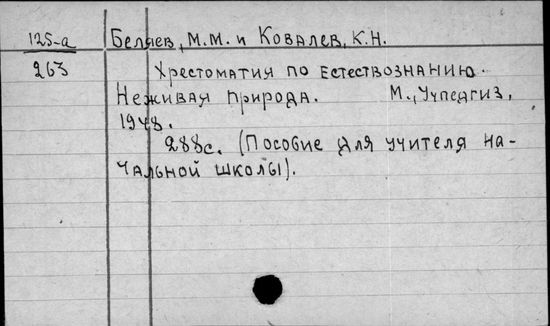 125-а Беляев, М.М. и Ковалев, К.Н.
263 Хрестоматия по естествознанию.
Неживая природа. М., Учпедгиз,
1948.
288с. (Пособие для учителя на-
чальной школы).